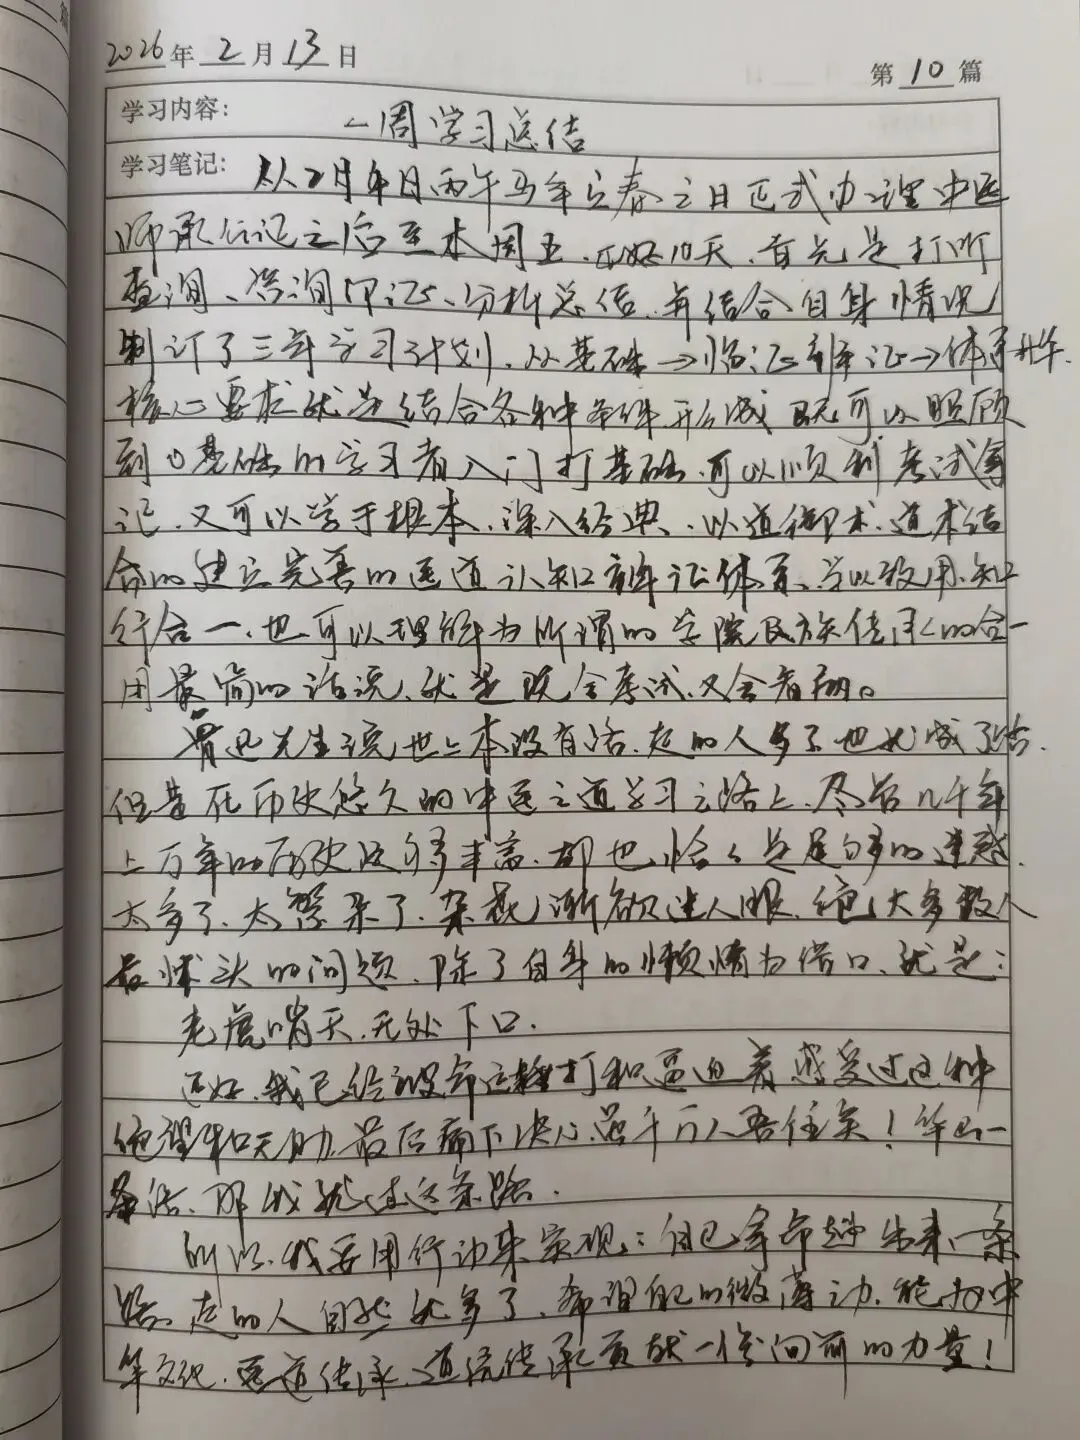 2026年2月13日
第10篇
学习内容：一周学习总结
学习笔记：从2月4日丙午马年立春之日正式办理中医
师承公证之后至本周五、正好10天、首先是打听
查询、咨询印证、分析总结、并结合自身情况
制订了三年学习计划、从基础→临证辩证→体系升华.
核心要求就是结合各种条件形成既可以照顾
到0基础的学习者入门打基础、可以顺利考试拿
证、又可以学于根本、深入经典、以道御术、道术结
合的建立完善的医道认知辩证体系、学以致用、知
行合一、也可以理解为所谓的学院民族传承的合一
用最简的话说、就是既会考试、又会看病。
鲁迅先生说世上本没有路、走的人多了也就成了路.
但是在历史悠久的中医之道学习之路上、尽管几千年
上万年的历史足够丰富、却也恰恰是足够多的迷惑、
太多了、太繁杂了、杂花渐欲迷人眼、绝大多数人
最怵头的问题、除了自身的懒惰为借口、就是：
老虎啃天、无处下口.
还好、我已经被命运捶打和逼迫着感受过这种
绝望和无助、最后痛下决心、虽千万人吾往矣！华山一
条路、那我就走这条路.
所以、我要用行动来实现：自己拿命趟出来一条
路、走的人自然就多了、希望自己的微薄之力、能为中
华文化、医道传承、道统传承贡献一份向前的力量！